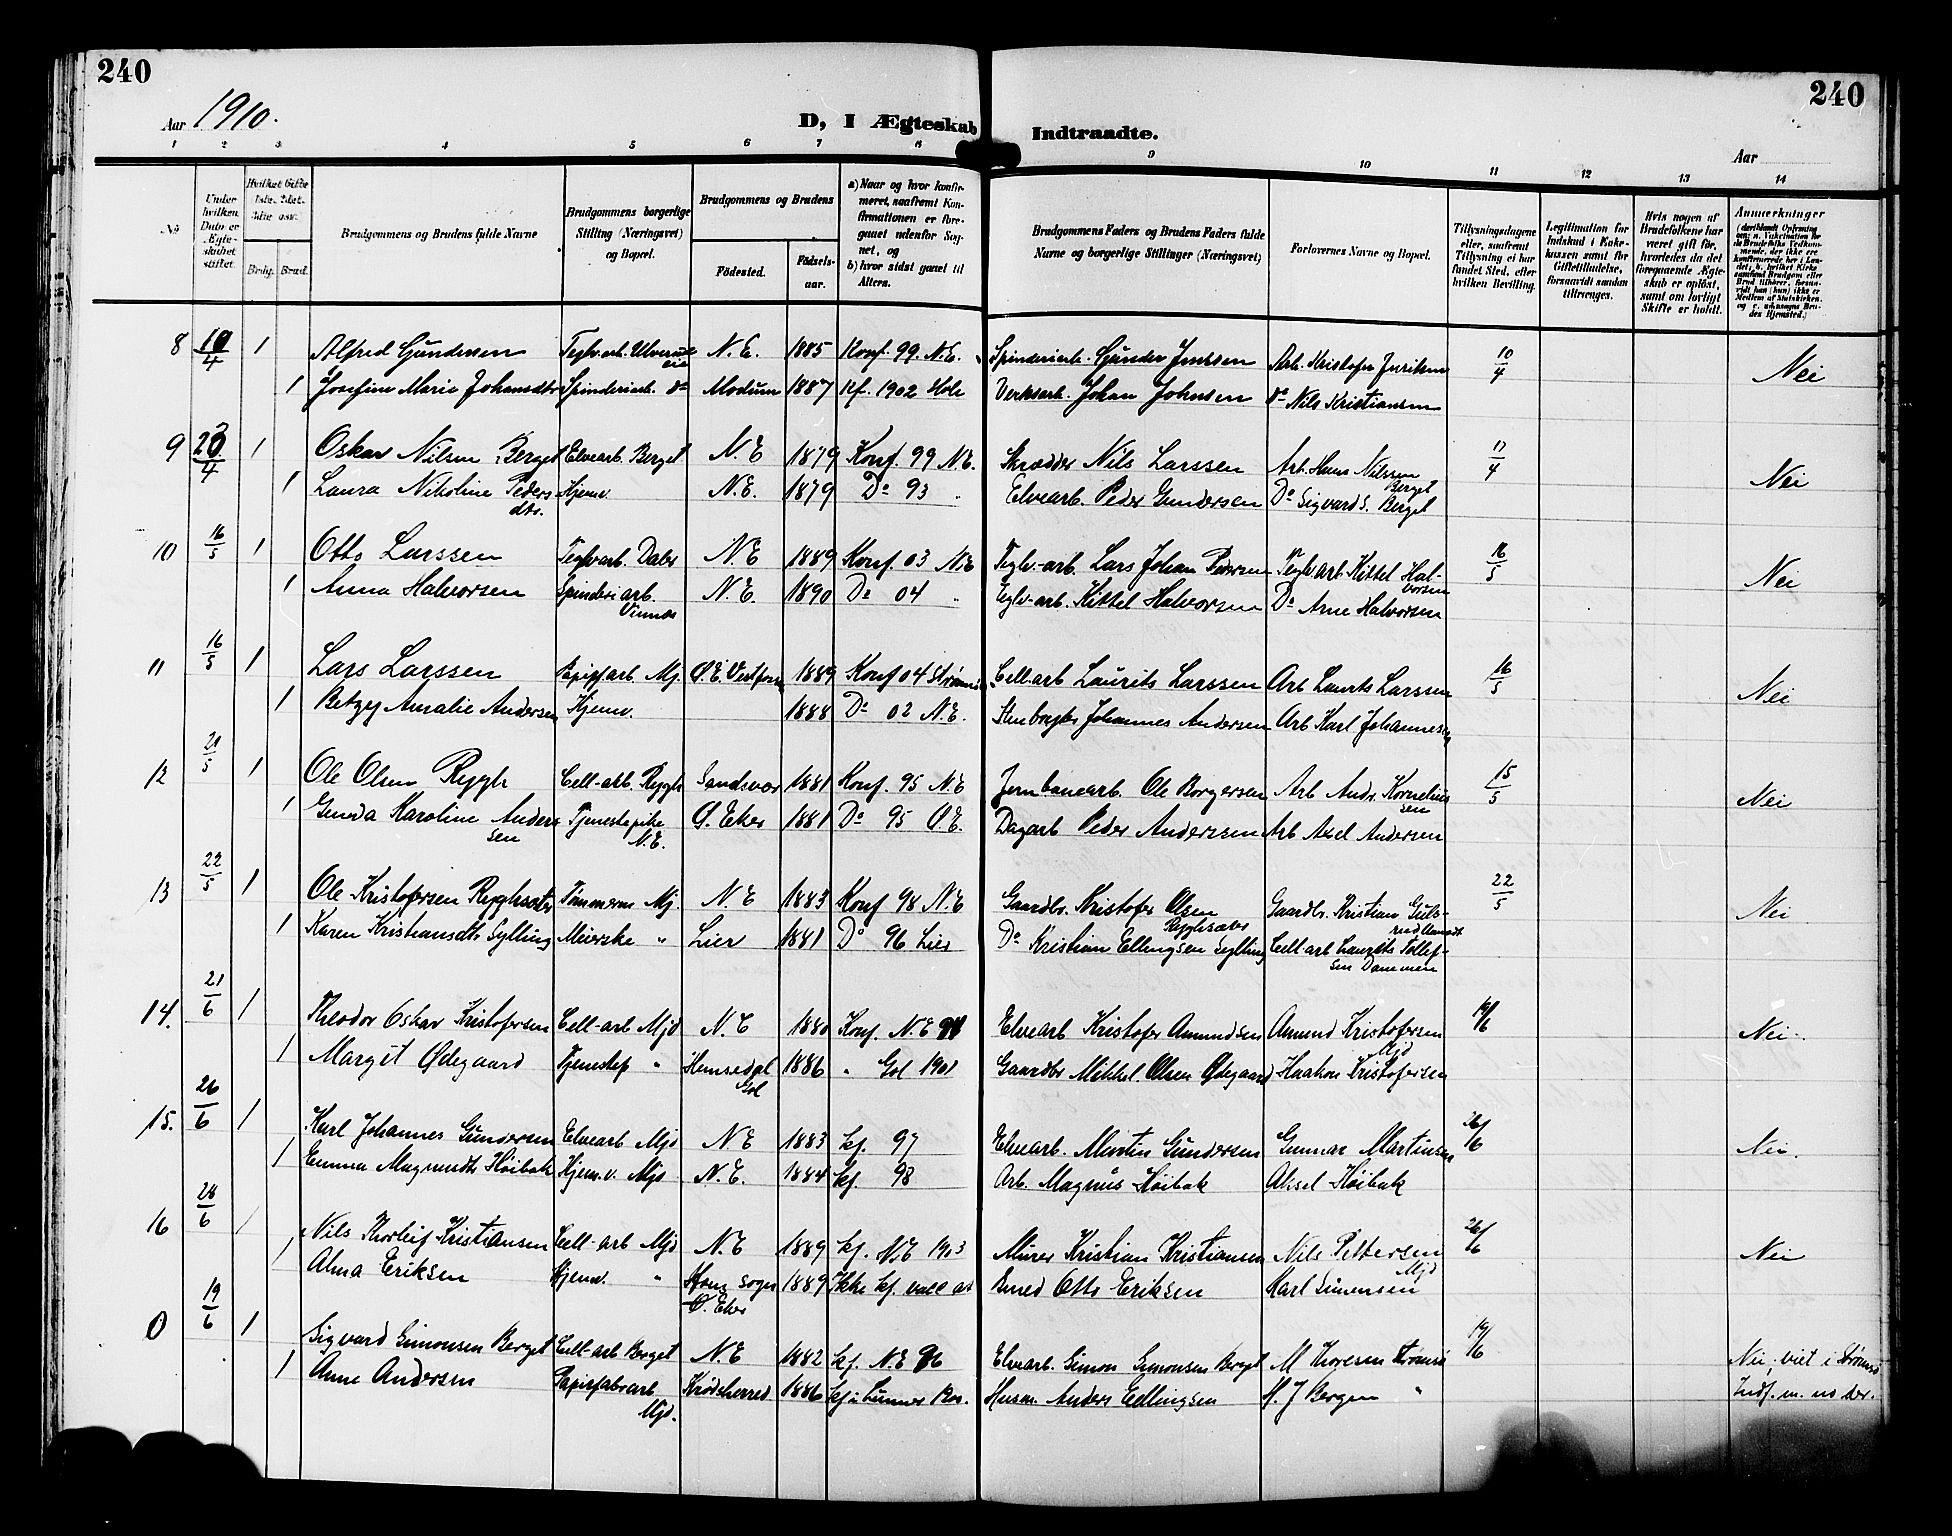 240
240
Aar 1910.
D, I Ægteskab Indtraadte.
Aar
1 2 3 4 5 6 7 8 9 10 11 12 13 14
No
Under hvilken Dato er Ægteskabet stiftet.
Hvilket Gifte 1ste, 2det, 3die osv.
Brdg. Brud.
Brudgommens og Brudens fulde Navne
Brudgommens borgerlige Stilling (Næringsvei) og Bopæl.
Brudgommens og Brudens
Födested.
Födselsaar.
a) Naar og hvor konfirmeret, saafremt Konfirmationen er foregaaet udenfor Sognet, og
b) hvor sidst gaaet til Alters.
Brudgommens Faders og Brudens Faders fulde Navne og borgerlige Stillinger (Næringsvei)
Forlovernes Navne og Bopæl.
Tillysningsdagene eller, saafremt Tillysning ei har fundet Sted, efter hvilken Bevilling.
Legitimation for Indskud i Enkekassen samt for Giftetilladelse, forsaavidt saadan tiltrænges.
Hvis nogen af Brudefolkene har været gift för, hvorledes da det foregaaende Ægteskab er oplöst, samt om lovligt Skifte er holdt.
Anmærkninger
8 10/4 1 Alfred Gundersen Teglv.arb. N. E. 1885 Konf. 99 N.E. Spinderiarb. Gunder Jenssen Arb. Kristofer 10/4 Nei
1 Josefine Marie Johansdtr Spinderiarb. do Modum 1887 kf. 1902 Hole Verksarb. Johan Johnsen do Nils Kristiansen
9 20/4 1 Oskar Nilsen Berget Elvearb. Berget N. E 1879 Konf. 99 N.E. Skrædder Nils Larssen Arb. Hans Nilssen Berget 17/4 Nei
1 Laura Nikoline Pedersdtr. Hjemv. N.E. 1879 Do 93 " Elvearb. Peder Gundersen Do Sigvard S. Berget
10 16/5 1 Otto Larssen Teglvarb. Daler N. E 1889 Konf. 03 N.E Teglv.-arb. Lars Johan Pedersen Teglv arb Kittel Halvorsen 16/5 Nei
1 Anna Halvorsen Spinderiarb. Vinnes N. E. 1890 Do 04 " Teglv-arb. Kittel Halvorsen Do Arne Halvorsen
11 16/5 1 Lars Larssen Papirf arb Mj. Ø.E. Vestfossen 1889 Konf 04 Strømmen Cell-arb Laurits Larssen Arb Laurits Larssen 16/5 Nei
1 Betzy Amalie Andersen Hjemv. 1888 Do 02 N.E. Johannes Andersen Arb Karl Johannesen
12 21/5 1 Ole Olsen Ryggh Cell-arb. Ryggh Sandsvær 1881 Konf. 95 N.E Jernbanearb. Ole Borgersen Arb Andr. Korneliussen 15/5 Nei
1 Karoline Andersen Tjenestepike N.E. Ø. Eker 1881 Do 95 Ø E. Dagarb Peder Anderssen Arb Axel Andersen
13 22/5 1 Ole Kristofersen Rygghsæter Tømmerm Mj. N. E 1883 Konf 98 N.E Gaardbr. Kristofer Olsen Rygghsæter Gaardbr. Kristian 22/5 Nei
1 Karen Kristiansdtr Sylling Meierske " Lier 1881 Do 96 Lier Do Kristian Ellingsen Sylling Cell-arb Laurits Tollefsen Dammen
14. 21/6 1 Theodor Oskar Kristofersen Cell-arb Mjd N. E 1880 Konf. N.E 94 Elvearb Kristofer Amundsen Amund Kristofersen Mjd 19/6 Nei.
1 Margit Ødegaard Tjenestep " Hemsedal Gol 1886 " Gol 1901 Gaardbr Mikkel Olsen Ødegaard Haakon Kristofersen
15. 26/6 1 Karl Johannes Gundersen Elvearb Mjd N E 1883 kf. 97 Elvearb. Martin Gundersen Gunnar Martinsen 26/6 Nei.
1 Emma Magnusdtr Høibak Hjem.v. Mjd N. E. 1884 kf. 98 Arb. Magnus Høibak Aksel Høibak
16 28/6 1 Nils Thorleif Kristiansen Cell-arb Mjd N. E 1889 kf. N.E 1903 Murer Kristian Kristiansen Nils Pettersen Mjd 26/6 Nei
1 Alma Eriksen Hjemv. " sogn Ø. Eker 1889 Ikke kf. Otto Eriksen Karl Simensen
0 19/6 1 Sigvard Simonsen Berget Cell-arb Berget N. E 1882 kf. N.E 96 Elvearb. Simon Simonsen Berget M Thoresen Strømsø 19/6 Nei. viet i Strømsø
1 Anne Andersen Papirfabrarb Mjd. Krødsherred 1886 kf i Husm. Anders Ellingsen H. J Bergen " Indf. m. no der.